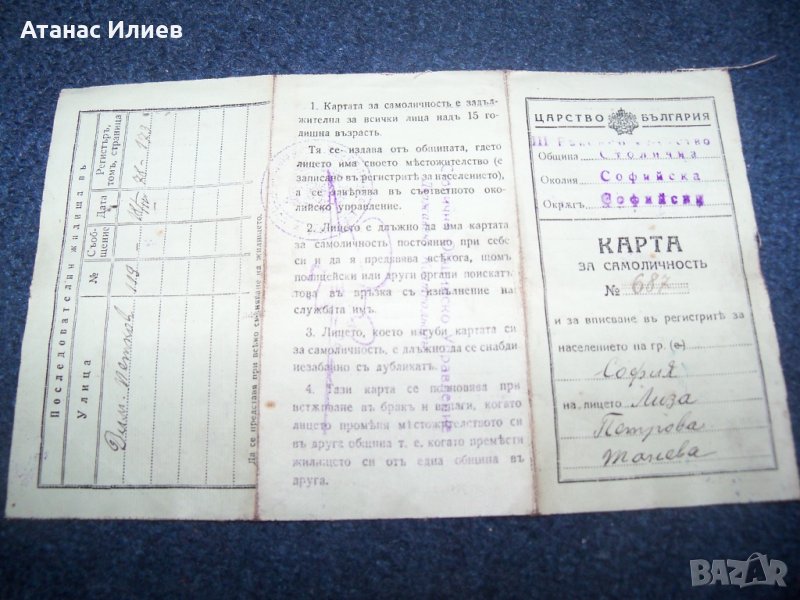 Атанас Илиев
Последователни жилища въ
Улица
№
Съобщение
Дата
Регистъръ, томъ, страница
Дим. Петков
119
Да се представя при всѣко сменяване на жилището.
1. Картата за самоличность е задължителна
за всички лица надъ 15 годишна
възрасть.
Тя се издава отъ общината, гдето
лицето има своето мѣстожителство (е
записано въ регистритѣ за населението),
а се завѣрява въ съответното околийско
управление.
2. Лицето е длъжно да има картата
за самоличность постоянно при себе
си и да я предявява всѣкога, щомъ
полицейски или други органи поискатъ
това въ връзка съ изпълнение на
службата имъ.
3. Лицето, което изгуби картата си
за самоличность, е длъжно да се снабди
незабавно съ дубликатъ.
4. Тази карта се подновява при
встѫпване въ бракъ и винаги, когато
лицето промѣня мѣстожителството си
въ друга община т. е. когато премѣсти
жилището си отъ една община въ
друга.
ЦАРСТВО БЪЛГАРИЯ
Община Столична
Околия Софийска
Окрѫгъ Софийски
КАРТА
ЗА САМОЛИЧНОСТЬ
№ 687
и за вписване въ регистритѣ за
населението на гр. (с)
София
на лицето Лиза
Петрова
Танева
BAZAR